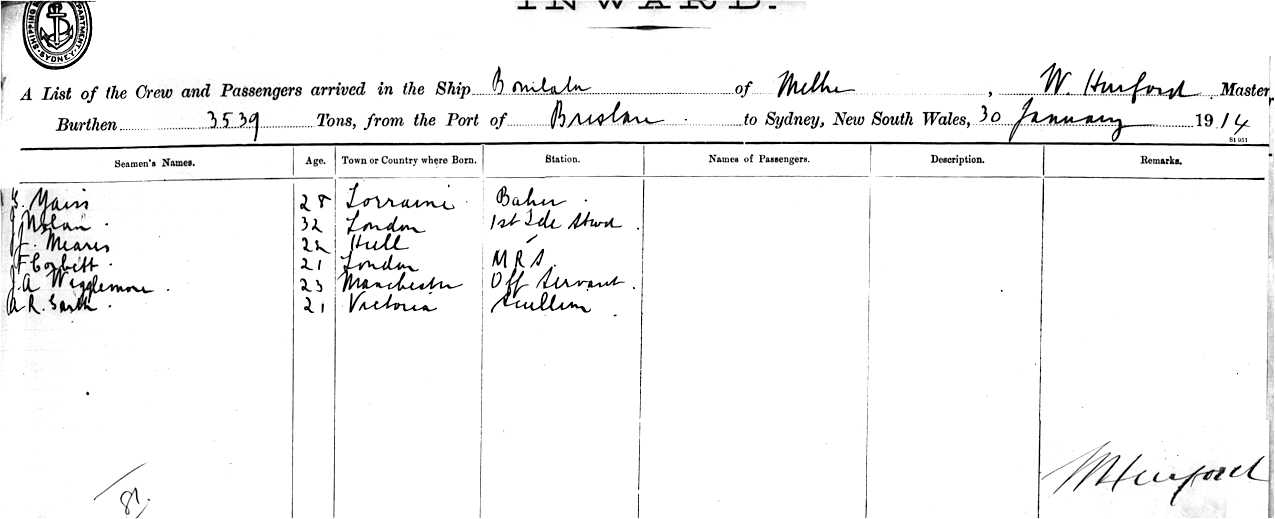 INWARD.
SHIPPING DEPARTMENT SYDNEY
A List of the Crew and Passengers arrived in the Ship of Melbe , W. Hurford Master
Burthen 3539 Tons, from the Port of to Sydney, New South Wales, 30 January 1914
81 951
Seamen's Names. Age. Town or Country where Born. Station. Names of Passengers. Description. Remarks.
28 Lorraine Baker
J Nolan 32 London 1st Sde Stwd
J. Mears 22 Hull
F Corbett 21 London M R S.
J. A Wigglemore 23 Manchester Off Servant
A R. 21 Victoria
W Hurford
87.